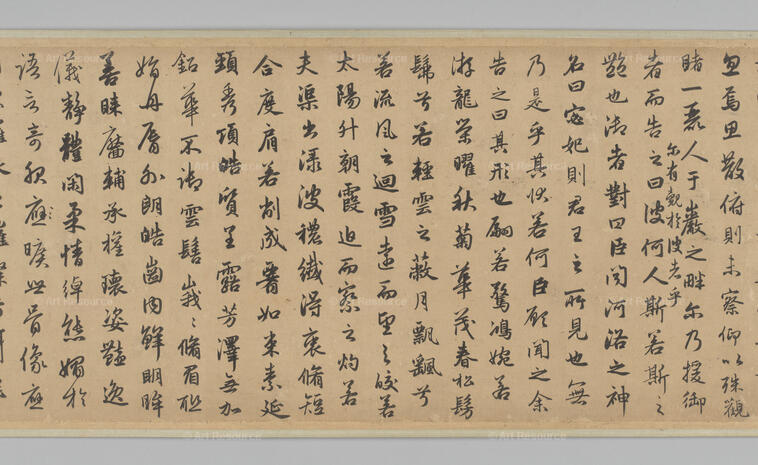 忽焉思散俯則未察仰以殊觀
睹一麗人于巖之畔尔乃援御
者而告之曰彼何人斯若斯之
尔有覿於彼者乎
豔也御者對曰臣聞河洛之神
名曰宓妃則君王之所見也無
乃是乎其狀若何臣願聞之余
告之曰其形也翩若驚鴻婉若
游龍榮曜秋菊華茂春松髣
髴兮若輕雲之蔽月飄颻兮
若流風之迴雪遠而望之皎若
太陽升朝霞迫而察之灼若
夫渠出淥波穠纖得衷脩短
合度肩若削成腰如束素延
頸秀項皓質呈露芳澤無加
鉛華不御雲髻峩〻脩眉聯
娟丹脣外朗皓齒内鮮明眸
善睞靨輔承權瓌姿豔逸
儀靜體閑柔情綽態媚於
語言奇服應曠世骨像應
© Art Resource